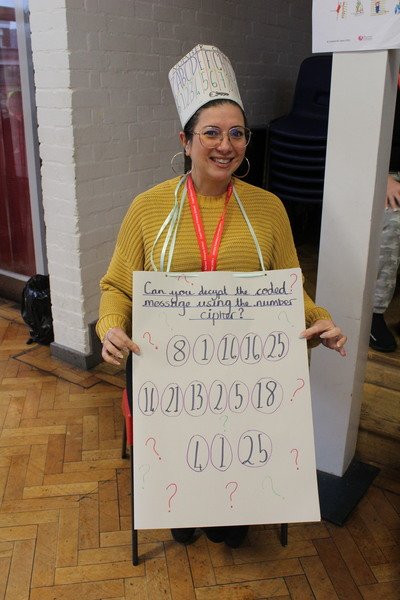 Can you decrypt the coded
message using the number
cipher?
8 1 16 16 25
14 21 13 2 5 18
4 1 25